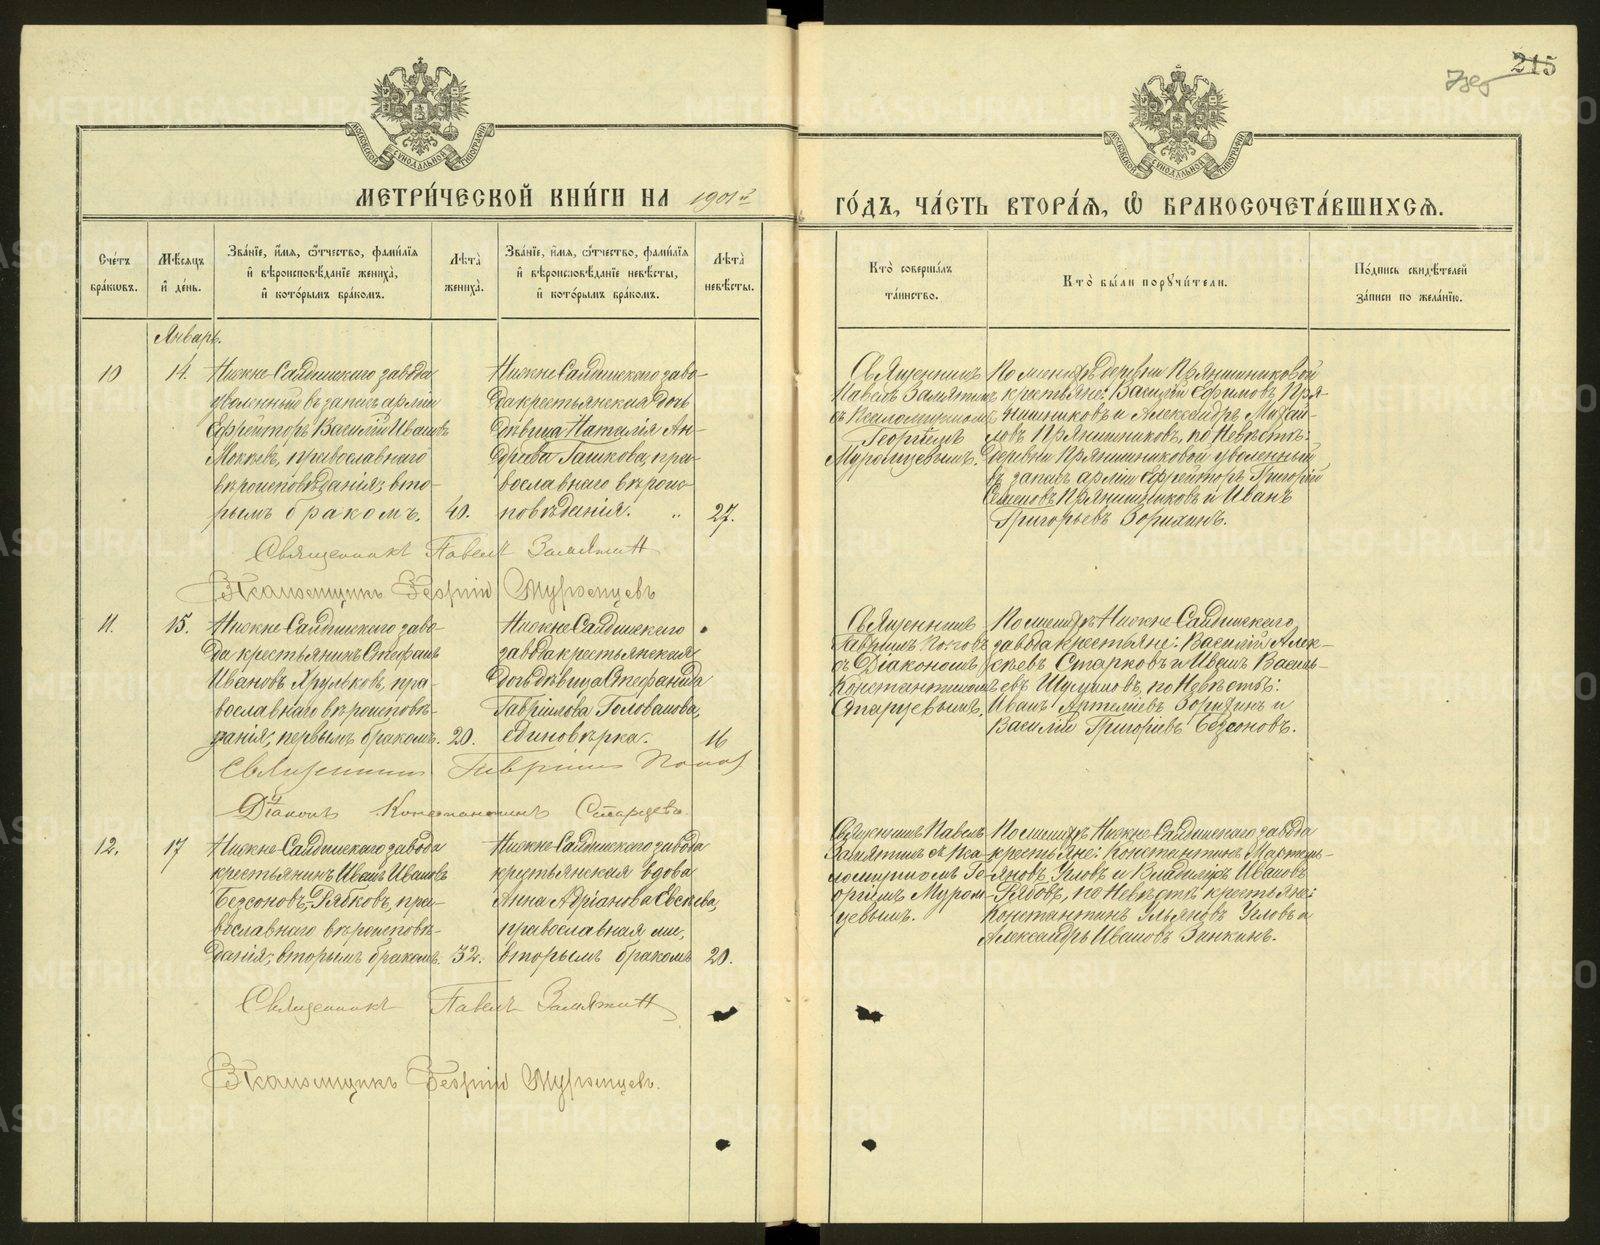 215
МЕТРИЧЕСКОЙ КНИГИ НА 1901й ГОДЪ, ЧАСТЬ ВТОРАЯ, Ѡ БРАКОСОЧЕТАВШИХСЯ.
МОСКОВСКОЙ СѴНОДАЛЬНОЙ ТИПОГРАФІИ
МОСКОВСКОЙ СѴНОДАЛЬНОЙ ТИПОГРАФІИ
Счетъ
браковъ.
Мѣсяцъ
и день.
Званіе, имя, ѿчество, фамилія
и вѣроисповѣданіе жениха,
и которымъ бракомъ.
Лѣта
жениха.
Званіе, имя, ѿчество, фамилія
и вѣроисповѣданіе невѣсты,
и которымъ бракомъ.
Лѣта
невѣсты.
Кто совершалъ
таинство.
Кто были поручители.
Подпись свидѣтелей
записи по желанію.
Январь.
10
14.
Нижне Салдинскаго завода
уволенный въ запасъ арміи
Ефрейторъ Василій Ивановъ
Мокѣевъ, православнаго
вѣроисповѣданія; вто-
рымъ бракомъ.
40.
Нижне Салдинскаго заво-
да крестьянская дочь
дѣвица Наталія Ан-
дреева Гашкова, пра-
вославнаго вѣроис-
повѣданія.
27.
Священникъ
Павелъ Замятин
съ Псаломщикомъ
Георгіемъ
Муромцевымъ.
По женихѣ деревни Прянишниковой
крестьяне: Василій Ефимовъ Пря-
нишниковъ и Александръ Михай-
ловъ Прянишниковъ, по Невѣстѣ:
Деревни Прянишниковой уволенный
въ запасъ арміи Ефрейторъ Григорій
Семеновъ Прянишниковъ и Иванъ
Григорьевъ Зорихинъ.
Священникъ Павелъ Замятин
Псаломщикъ Георгій Муромцевъ
11.
15.
Нижне Салдинскаго заво-
да крестьянинъ Стефанъ
Ивановъ Хрульковъ, пра-
вославнаго вѣроисповѣ-
данія; первымъ бракомъ.
20.
Нижне Салдинскаго
завода крестьянская
дочь дѣвица Стефанида
Гавріилова Голованова,
единовѣрка.
16
Священникъ
Гавріилъ Поповъ
съ Діакономъ
Константиномъ
Старцевымъ.
По женихѣ Нижне Салдинскаго
завода крестьяне: Василій Алек-
сѣевъ Старковъ и Иванъ Василь-
евъ Шумиловъ, по Невѣстѣ:
Иванъ Артемьевъ Зорихинъ и
Василій Григорьевъ Безсоновъ.
Священникъ Гавріилъ Попов
Діаконъ Константинъ Старцевъ.
12.
17
Нижне Салдинскаго завода
крестьянинъ Иванъ Ивановъ
Безсоновъ-Рябковъ, пра-
вославнаго вѣроисповѣ-
данія; вторымъ бракомъ.
32.
Нижне Салдинскаго завода
крестьянская вдова
Анна Адріанова Евсѣева,
православная же,
вторымъ бракомъ
20.
Священникъ Павелъ
Замятинъ съ Пса-
ломщикомъ Ге-
оргіемъ Муром-
цевымъ.
По женихѣ Нижне Салдинскаго завода
крестьяне: Константинъ Мартемь-
яновъ Угловъ и Владиміръ Ивановъ
Рябовъ, по Невѣстѣ крестьяне:
Константинъ Ульяновъ Угловъ и
Александръ Ивановъ Занкинъ.
Священникъ Павелъ Замятин
Псаломщикъ Георгій Муромцевъ.
METRIKI.GASO-URAL.RU